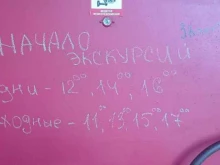 НАЧАЛО
ЭКСКУРСИЙ
дни - 12⁰⁰, 14⁰⁰, 16⁰⁰
ходные - 11⁰⁰, 13⁰⁰, 15⁰⁰, 17⁰⁰